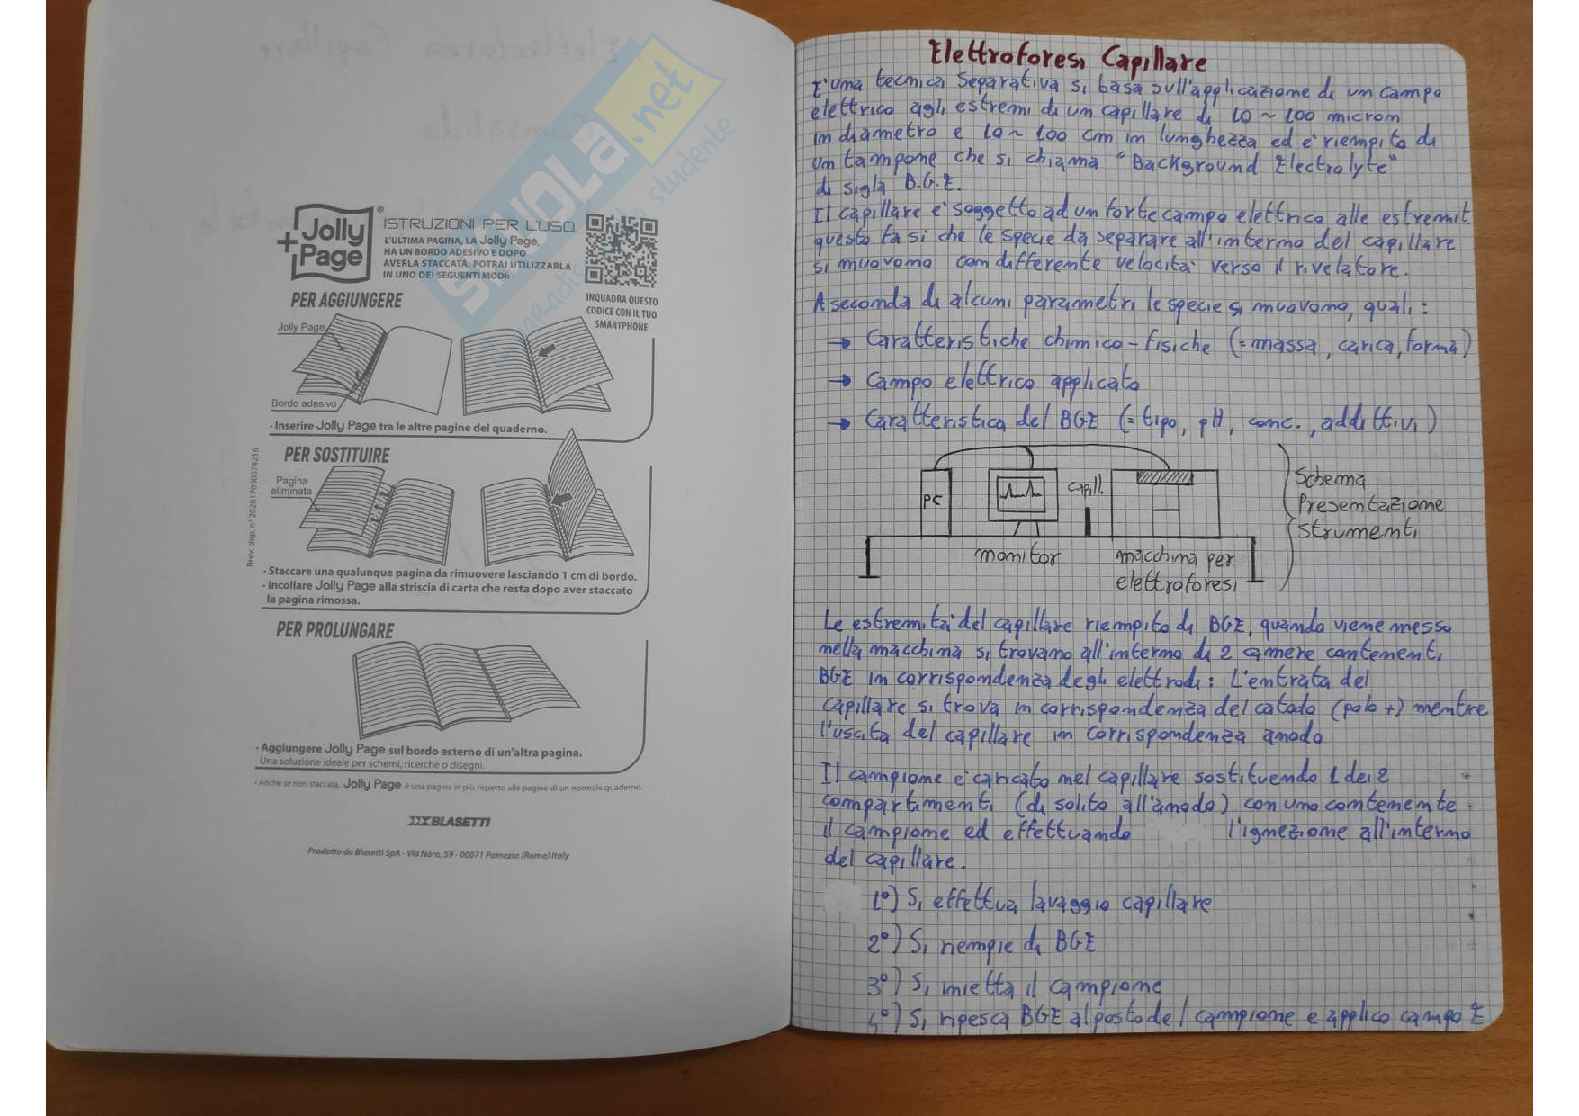 Jolly
+
Page
®
ISTRUZIONI PER L'USO
L'ULTIMA PAGINA, LA Jolly Page,
HA UN BORDO ADESIVO E DOPO
AVERLA STACCATA, POTRAI UTILIZZARLA
IN UNO DEI SEGUENTI MODI:
INQUADRA QUESTO
CODICE CON IL TUO
SMARTPHONE
PER AGGIUNGERE
Jolly Page
Bordo adesivo
- Inserire Jolly Page tra le altre pagine del quaderno.
PER SOSTITUIRE
Pagina
eliminata
- Staccare una qualunque pagina da rimuovere lasciando 1 cm di bordo.
- Incollare Jolly Page alla striscia di carta che resta dopo aver staccato
la pagina rimossa.
PER PROLUNGARE
- Aggiungere Jolly Page sul bordo esterno di un'altra pagina.
Una soluzione ideale per schemi, ricerche o disegni.
- Anche se non staccata, Jolly Page è una pagina in più rispetto alle pagine di un normale quaderno.
BLASETTI
Prodotto da Blasetti SpA - Via Naro, 59 - 00071 Pomezia (Roma) Italy
.net
studente
Elettroforesi Capillare
E' una tecnica separativa si basa sull'applicazione di un campo
elettrico agli estremi di un capillare di 10 ~ 100 micron
in diametro e 10 ~ 100 cm in lunghezza ed è riempito di
un tampone che si chiama "Background Electrolyte"
di sigla B.G.E.
Il capillare è soggetto ad un forte campo elettrico alle estremit
questo fa si che le specie da separare all'interno del capillare
si muovono con differente velocità verso il rivelatore.
A seconda di alcuni parametri le specie si muovono, quali:
→ Caratteristiche chimico-fisiche (=massa, carica, forma)
→ Campo elettrico applicato
→ Caratteristica del BGE (=tipo, pH, conc., additivi)
PC
capill.
monitor
macchina per
elettroforesi
Schema
Presentazione
strumenti
Le estremità del capillare riempito di BGE, quando viene messo
nella macchina si trovano all'interno di 2 camere contenenti
BGE in corrispondenza degli elettrodi: L'entrata del
capillare si trova in corrispondenza del catodo (polo +) mentre
l'uscita del capillare in corrispondenza anodo
Il campione è caricato nel capillare sostituendo 1 dei 2
compartimenti (di solito all'anodo) con uno contenente
il campione ed effettuando l'ignezione all'interno
del capillare.
1°) Si effettua lavaggio capillare
2°) Si riempie di BGE
3°) Si inietta il campione
4°) Si ripesca BGE al posto del campione e applico campo E